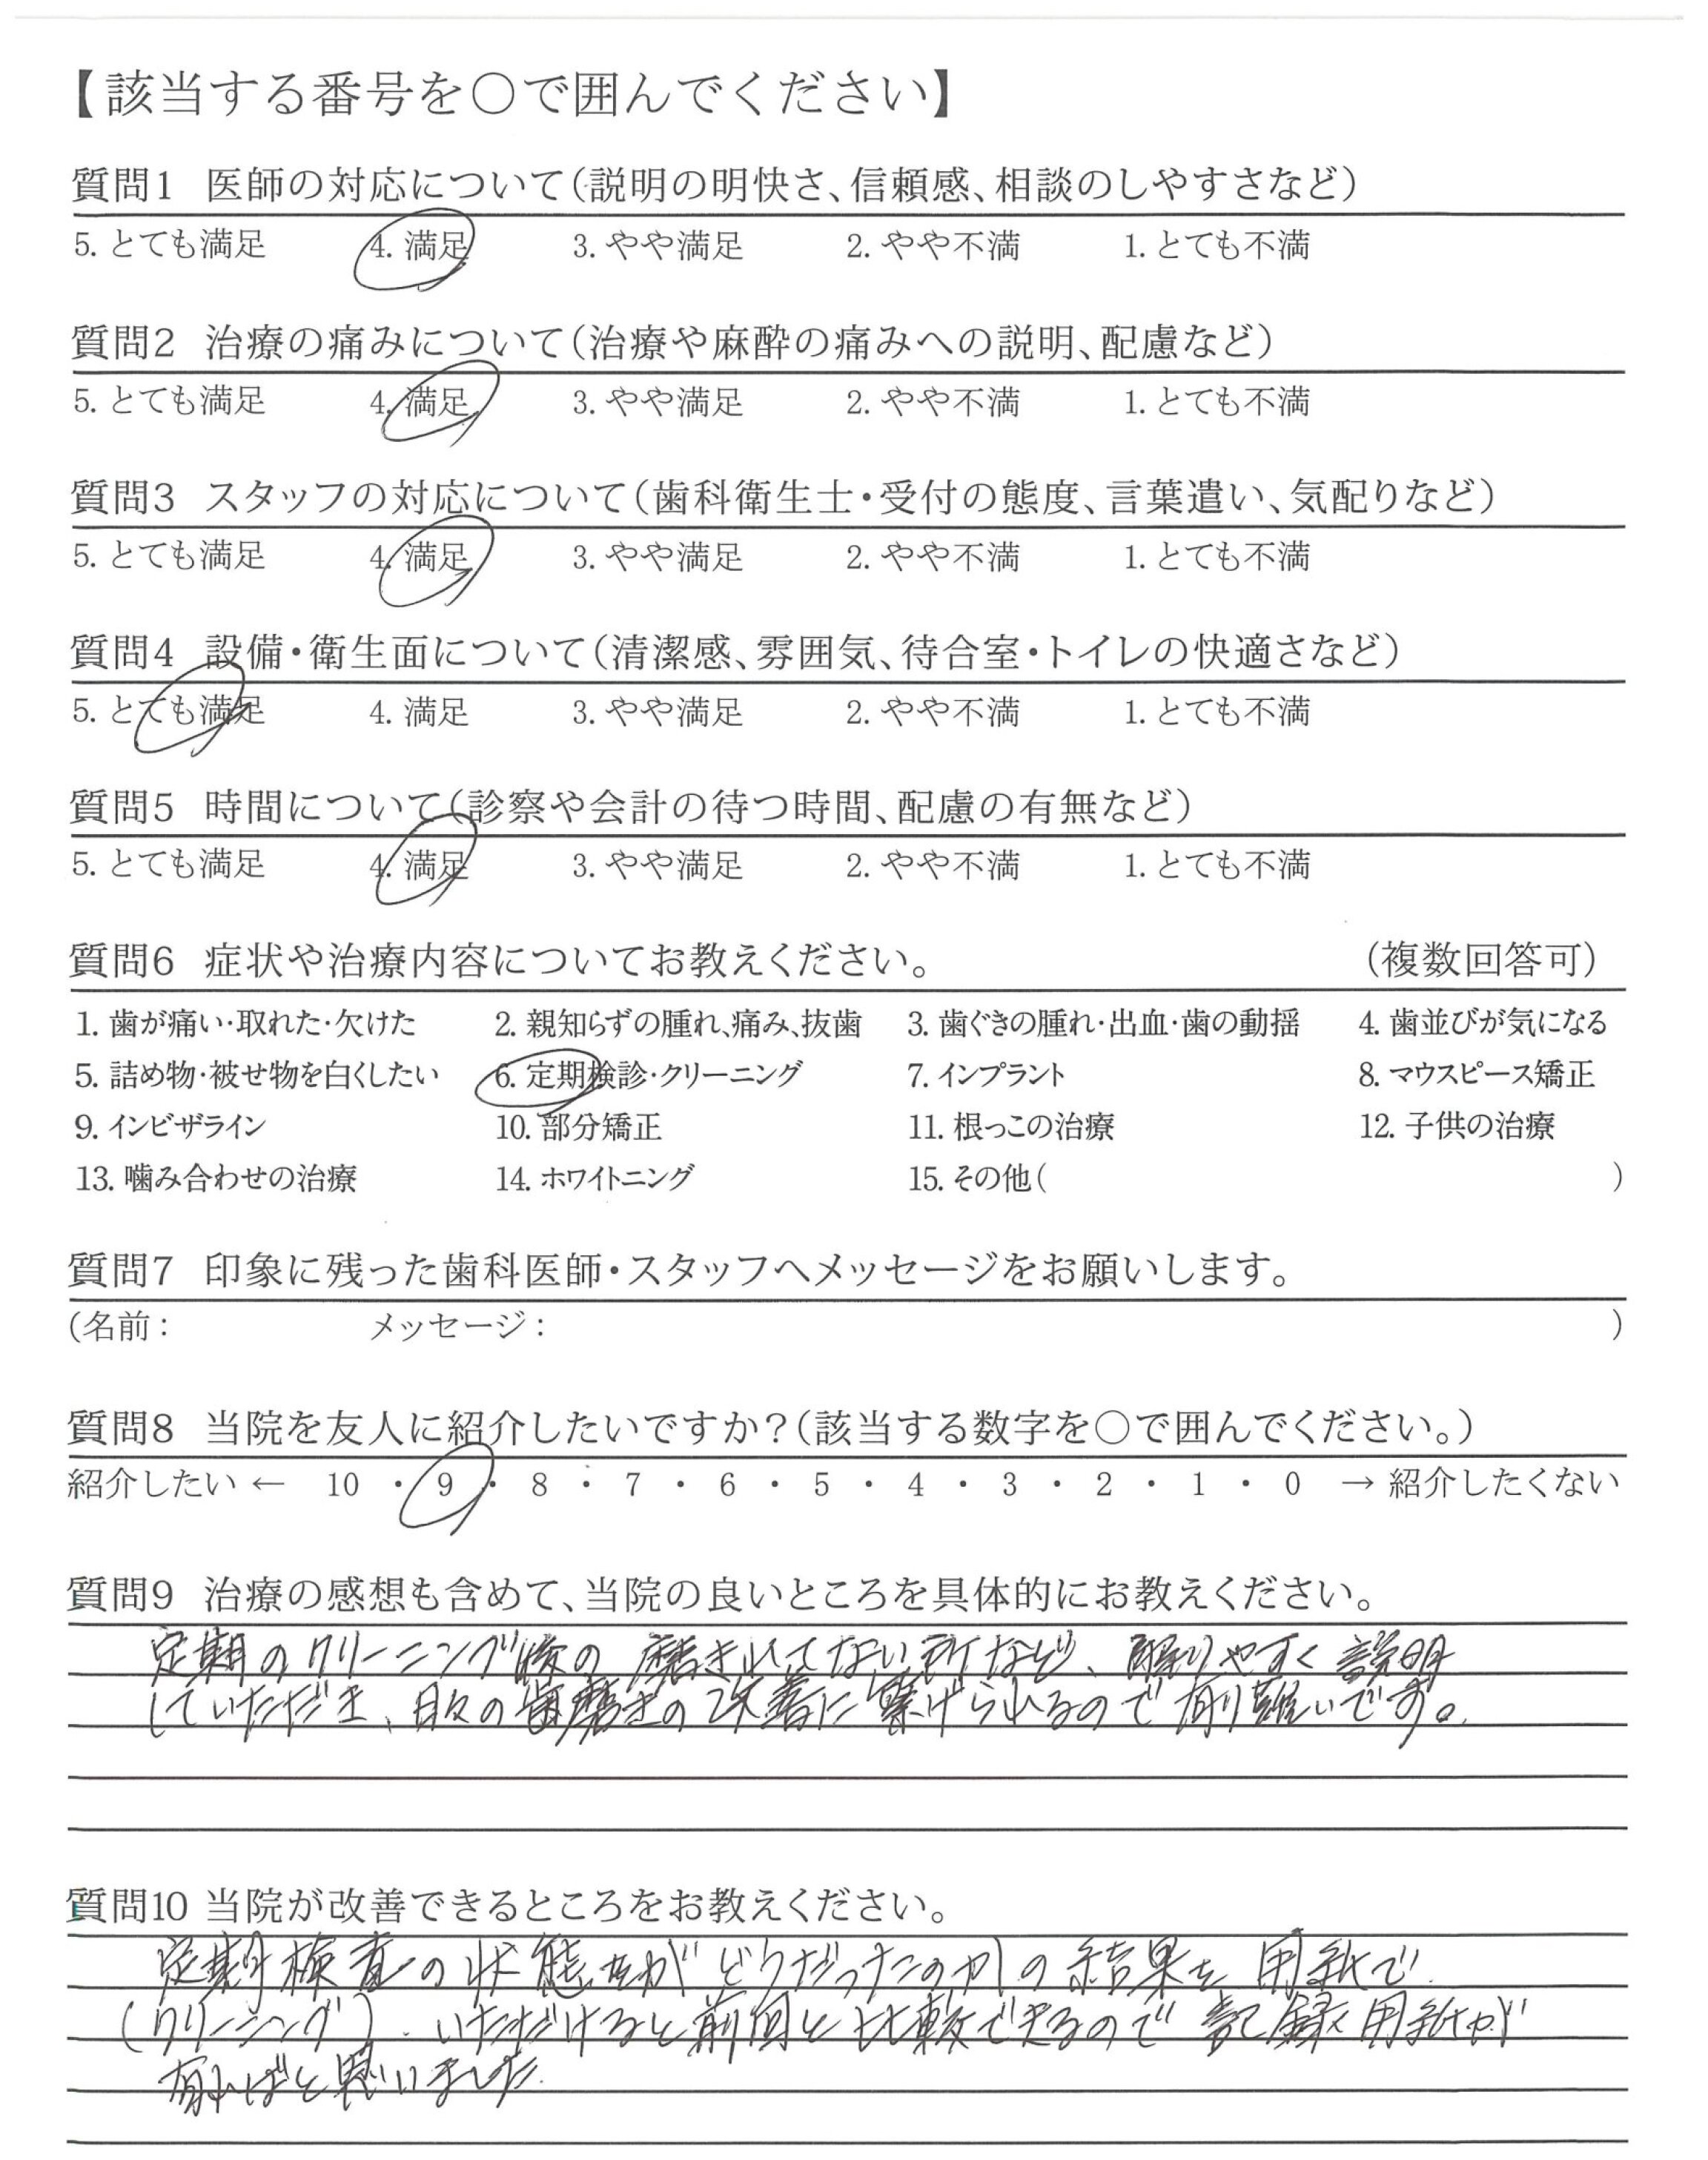 【該当する番号を○で囲んでください】
質問1 医師の対応について(説明の明快さ、信頼感、相談のしやすさなど)
5. とても満足 4. 満足 3. やや満足 2. やや不満 1. とても不満
質問2 治療の痛みについて(治療や麻酔の痛みへの説明、配慮など)
5. とても満足 4. 満足 3. やや満足 2. やや不満 1. とても不満
質問3 スタッフの対応について(歯科衛生士・受付の態度、言葉遣い、気配りなど)
5. とても満足 4. 満足 3. やや満足 2. やや不満 1. とても不満
質問4 設備・衛生面について(清潔感、雰囲気、待合室・トイレの快適さなど)
5. とても満足 4. 満足 3. やや満足 2. やや不満 1. とても不満
質問5 時間について(診察や会計の待つ時間、配慮の有無など)
5. とても満足 4. 満足 3. やや満足 2. やや不満 1. とても不満
質問6 症状や治療内容についてお教えください。 (複数回答可)
1. 歯が痛い・取れた・欠けた 2. 親知らずの腫れ、痛み、抜歯 3. 歯ぐきの腫れ・出血・歯の動揺 4. 歯並びが気になる
5. 詰め物・被せ物を白くしたい 6. 定期検診・クリーニング 7. インプラント 8. マウスピース矯正
9. インビザライン 10. 部分矯正 11. 根っこの治療 12. 子供の治療
13. 噛み合わせの治療 14. ホワイトニング 15. その他( )
質問7 印象に残った歯科医師・スタッフへメッセージをお願いします。
(名前： メッセージ： )
質問8 当院を友人に紹介したいですか？(該当する数字を○で囲んでください。)
紹介したい ← 10 ・ 9 ・ 8 ・ 7 ・ 6 ・ 5 ・ 4 ・ 3 ・ 2 ・ 1 ・ 0 → 紹介したくない
質問9 治療の感想も含めて、当院の良いところを具体的にお教えください。
定期のクリーニング後の 磨きれてない所など、解りやすく説明
していただき、日々の歯磨きの改善に繋げられるので有り難いです。
質問10 当院が改善できるところをお教えください。
定期検査の状態がどうだったのかの結果を用紙で
(クリーニング) いただけると前回と比較できるので記録用紙が
有ればと思いました